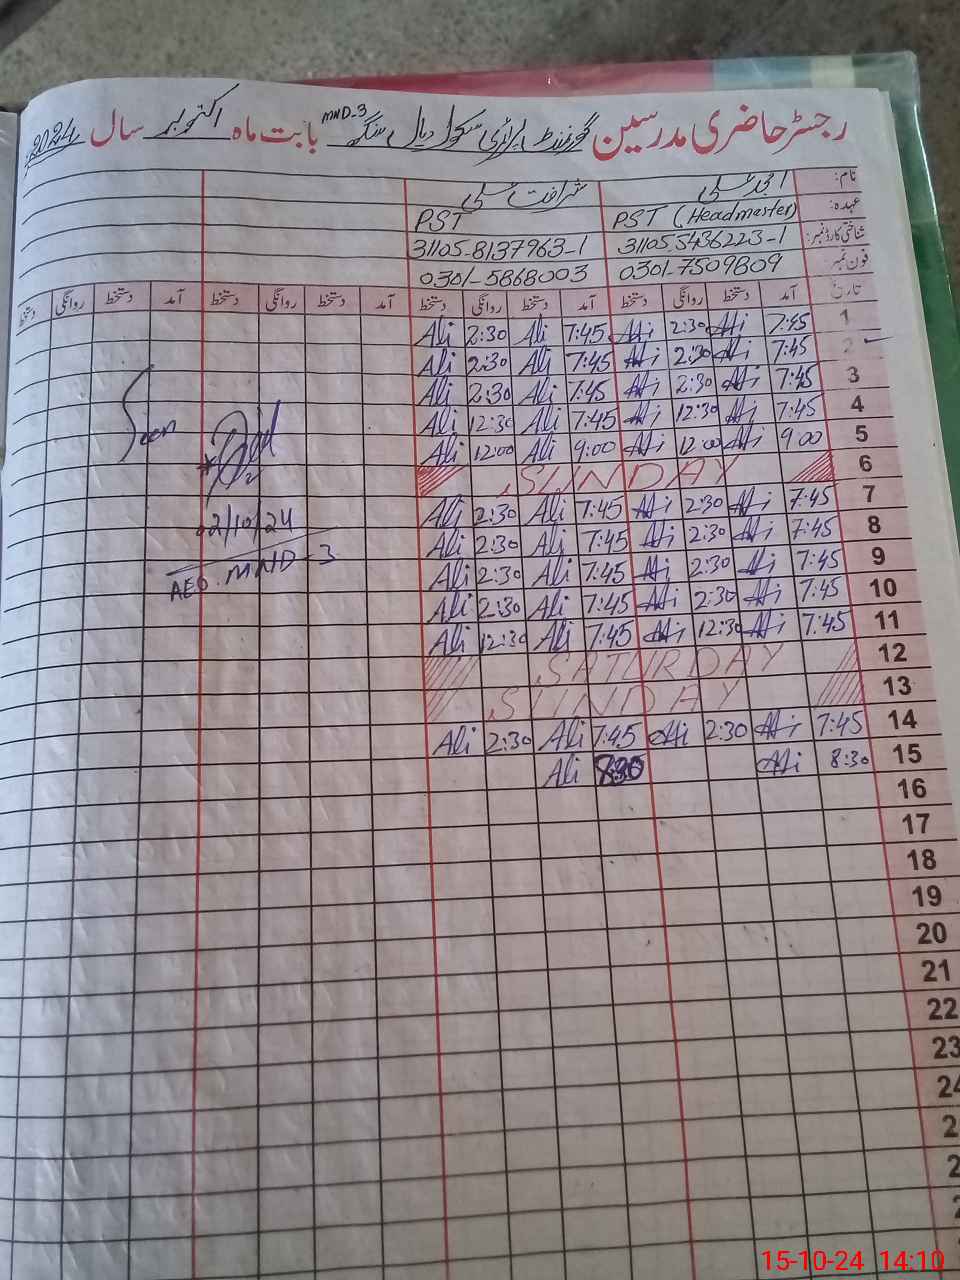 رجسٹر حاضری مدرسین گورنمنٹ پرائمری سکول دیال سنگھ MND-3 بابت ماہ اکتوبر سال 2024ء
نام: امجد علی شرافت علی
عہدہ: PST (Headmaster) PST
شناختی کارڈ نمبر: 31105-5436223-1 31105-8137963-1
فون نمبر 0301-7509809 0301-5868003
تاریخ آمد دستخط روانگی دستخط آمد دستخط روانگی دستخط آمد دستخط روانگی دستخط آمد دستخط روانگی دستخط
1 7:45 Ali 2:30 Ali 7:45 Ali 2:30 Ali
2 7:45 Ali 2:30 Ali 7:45 Ali 2:30 Ali
3 7:45 Ali 2:30 Ali 7:45 Ali 2:30 Ali
4 7:45 Ali 12:30 Ali 7:45 Ali 12:30 Ali
5 9:00 Ali 12:00 Ali 9:00 Ali 12:00 Ali
6 SUNDAY
7 7:45 Ali 2:30 Ali 7:45 Ali 2:30 Ali
8 7:45 Ali 2:30 Ali 7:45 Ali 2:30 Ali
9 7:45 Ali 2:30 Ali 7:45 Ali 2:30 Ali
10 7:45 Ali 2:30 Ali 7:45 Ali 2:30 Ali
11 7:45 Ali 12:30 Ali 7:45 Ali 12:30 Ali
12 SATURDAY
13 SUNDAY
14 7:45 Ali 2:30 Ali 7:45 Ali 2:30 Ali
15 8:30 Ali 8:30 Ali
16
17
18
19
20
21
22
23
24
Seen
02/10/24
AEO. MND-3
15-10-24 14:10